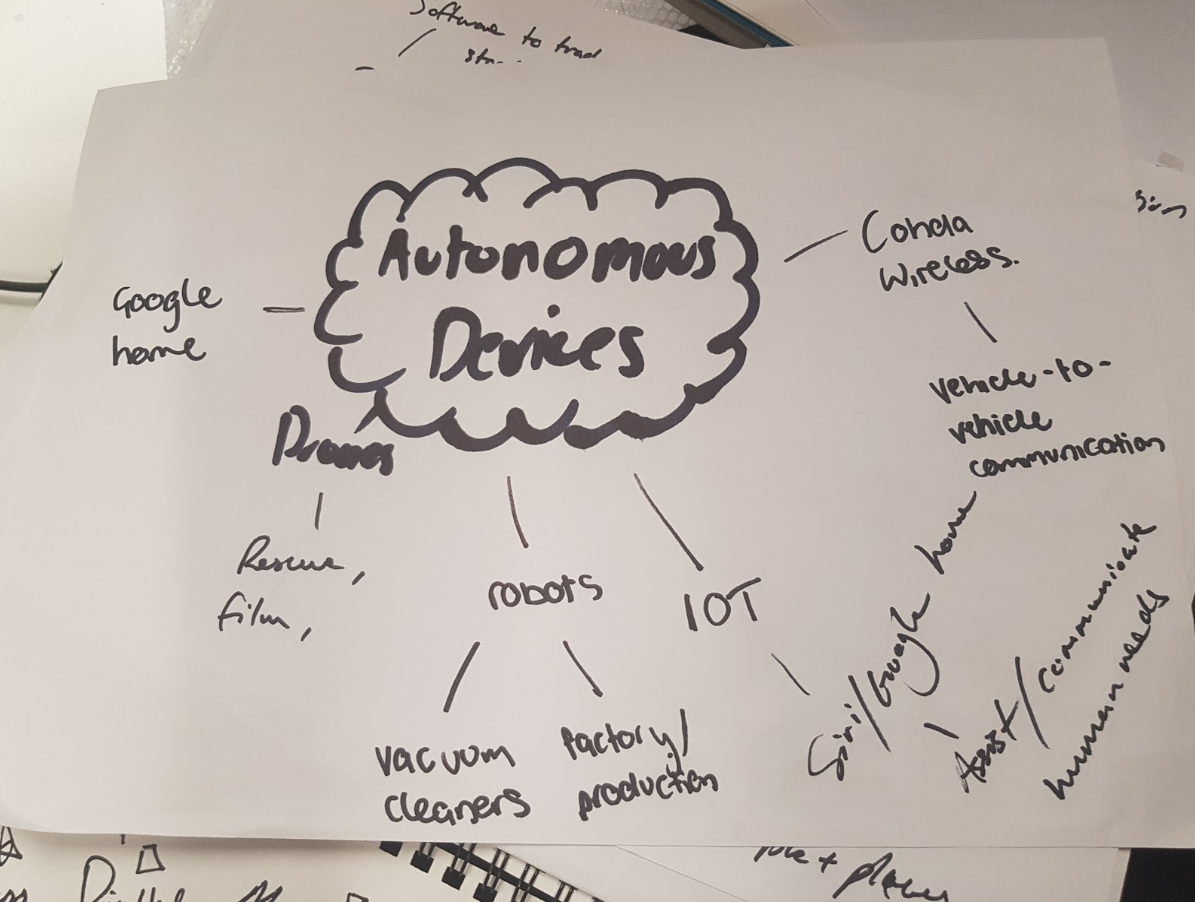 Software to trad
Autonomous
Devices
Google
home
Cohda
Wireless.
vehicle-to-
vehicle
communication
Drones
Rescue,
film,
robots
vacuum
cleaners
factory/
production
IOT
Siri/Google home
Assist/communicate
human needs
+